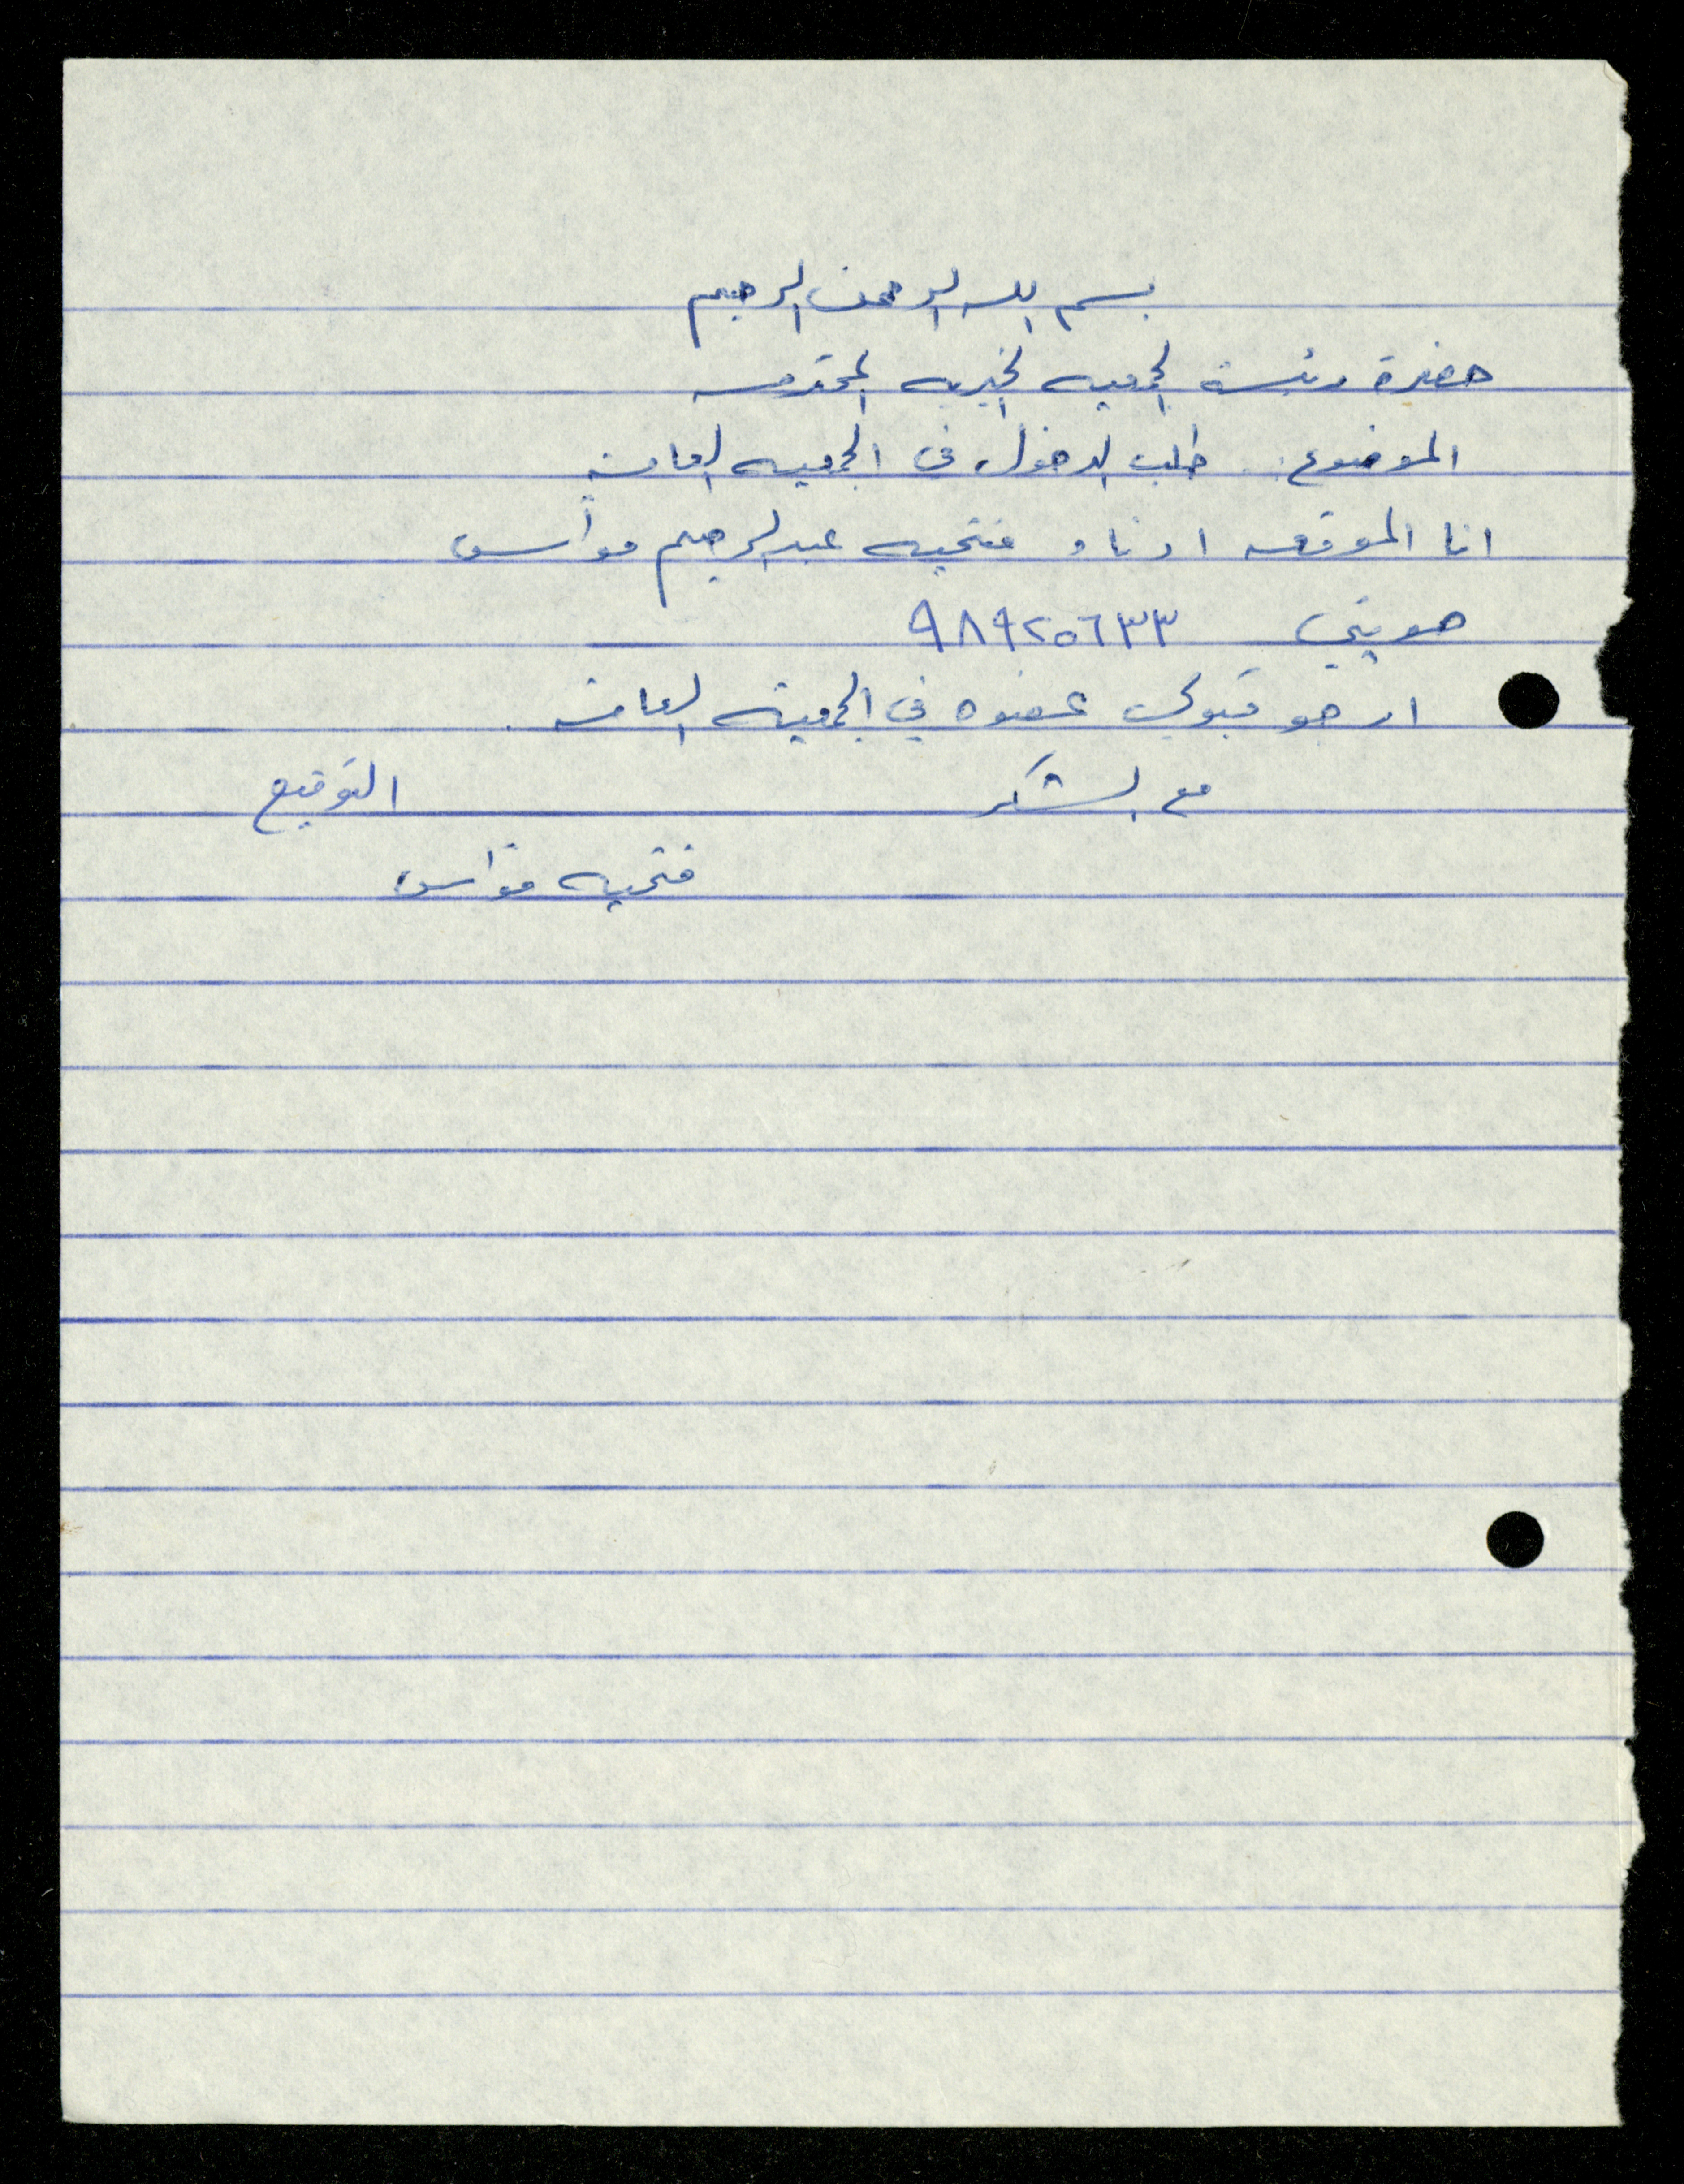 بسم الله الرحمن الرحيم
حضرة رئيسة الجمعيه الخيريه المحترمه
الموضوع: طلب الدخول في الجمعيه العامه
انا الموقعه ادناه فتحيه عبدالرحيم قواس
هويتي ٩٨٩٢٥٦٣٣
ارجو قبولي عضوه في الجمعيه العامه
مع الشكر التوقيع
فتحيه قواس